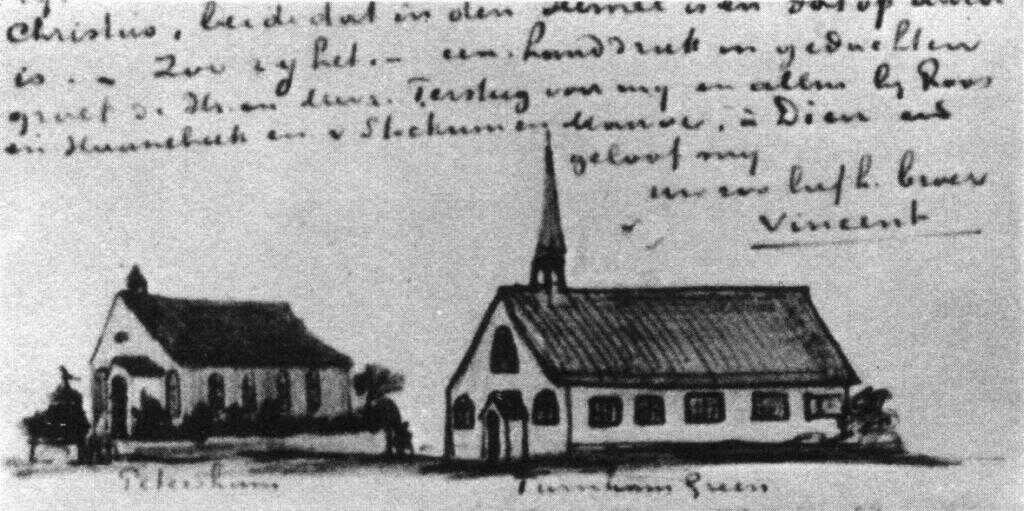 Christus, beide dat in den Hemel is en dat op aarde
is. - Zoo zij het. - een handdruk in gedachten
groet de Hr. en Mevr. Tersteeg voor mij en allen bij Roos
en Haanebeek en v Stockum en Mauve, à Dieu en
geloof mij
uw zoo liefh. broer
Vincent
Petersham
Turnham Green